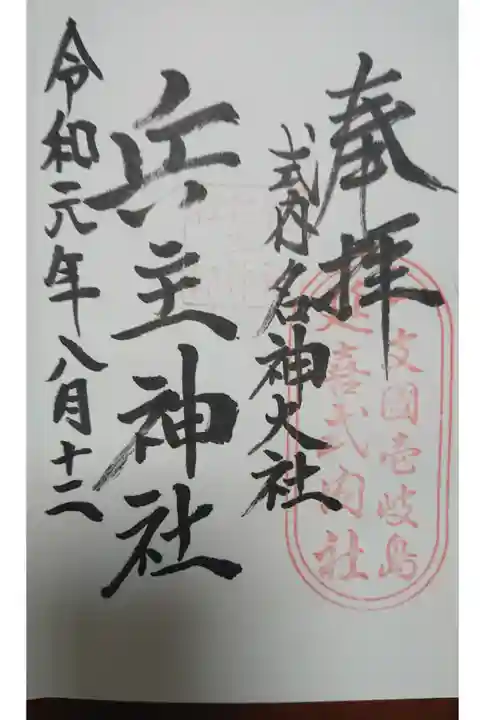 奉拝
一支國壱岐島
延喜式内社
式内名神大社
兵主神社
令和元年八月十二